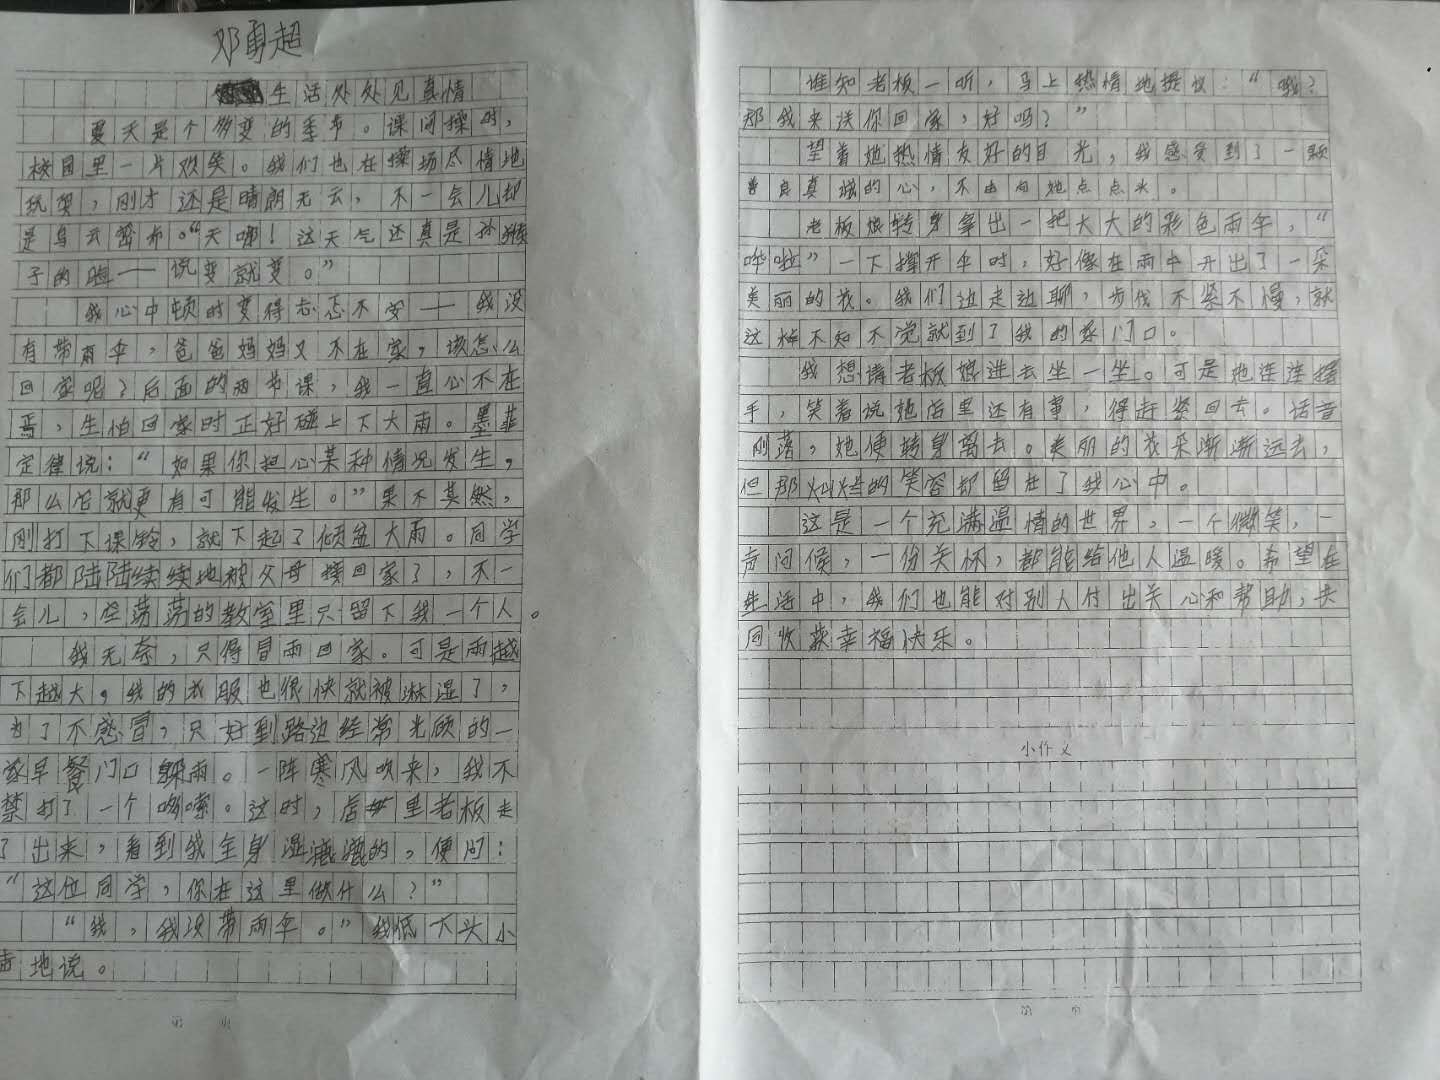 邓勇超
生活处处见真情
夏天是个多变的季节。课间操时，
校园里一片欢笑。我们也在操场尽情地
玩耍，刚才还是晴朗无云，不一会儿却
是乌云密布。“天哪！这天气还真是孙猴
子的脸——说变就变。”
我心中顿时变得忐忑不安——我没
有带雨伞，爸爸妈妈又不在家，该怎么
回家呢？后面的两节课，我一直心不在
焉，生怕回家时正好碰上下大雨。墨菲
定律说：“如果你担心某种情况发生，
那么它就更有可能发生。”果不其然，
刚打下课铃，就下起了倾盆大雨。同学
们都陆陆续续地被父母接回家了，不一
会儿，空荡荡的教室里只留下我一个人。
我无奈，只得冒雨回家。可是雨越
下越大，我的衣服也很快就被淋湿了，
为了不感冒，只好到路边经常光顾的一
家早餐门口躲雨。一阵寒风吹来，我不
禁打了一个哆嗦。这时，店里老板走
了出来，看到我全身湿漉漉的，便问：
“这位同学，你在这里做什么？”
“我，我没带雨伞。”我低下头小
声地说。
谁知老板一听，马上热情地提议：“哦？
那我来送你回家，好吗？”
望着她热情友好的目光，我感受到了一颗
善良真诚的心，不由向她点点头。
老板娘转身拿出一把大大的彩色雨伞，“
哗啦”一下撑开伞时，好像在雨中开出了一朵
美丽的花。我们边走边聊，步伐不紧不慢，就
这样不知不觉就到了我的家门口。
我想请老板娘进去坐一坐。可是她连连摆
手，笑着说她店里还有事，得赶紧回去。话音
刚落，她便转身离去。美丽的花朵渐渐远去，
但那灿烂的笑容却留在了我心中。
这是一个充满温情的世界，一个微笑，一
声问候，一份关怀，都能给他人温暖。希望在
生活中，我们也能对别人付出关心和帮助，共
同收获幸福快乐。
小作文
第 页
第 页